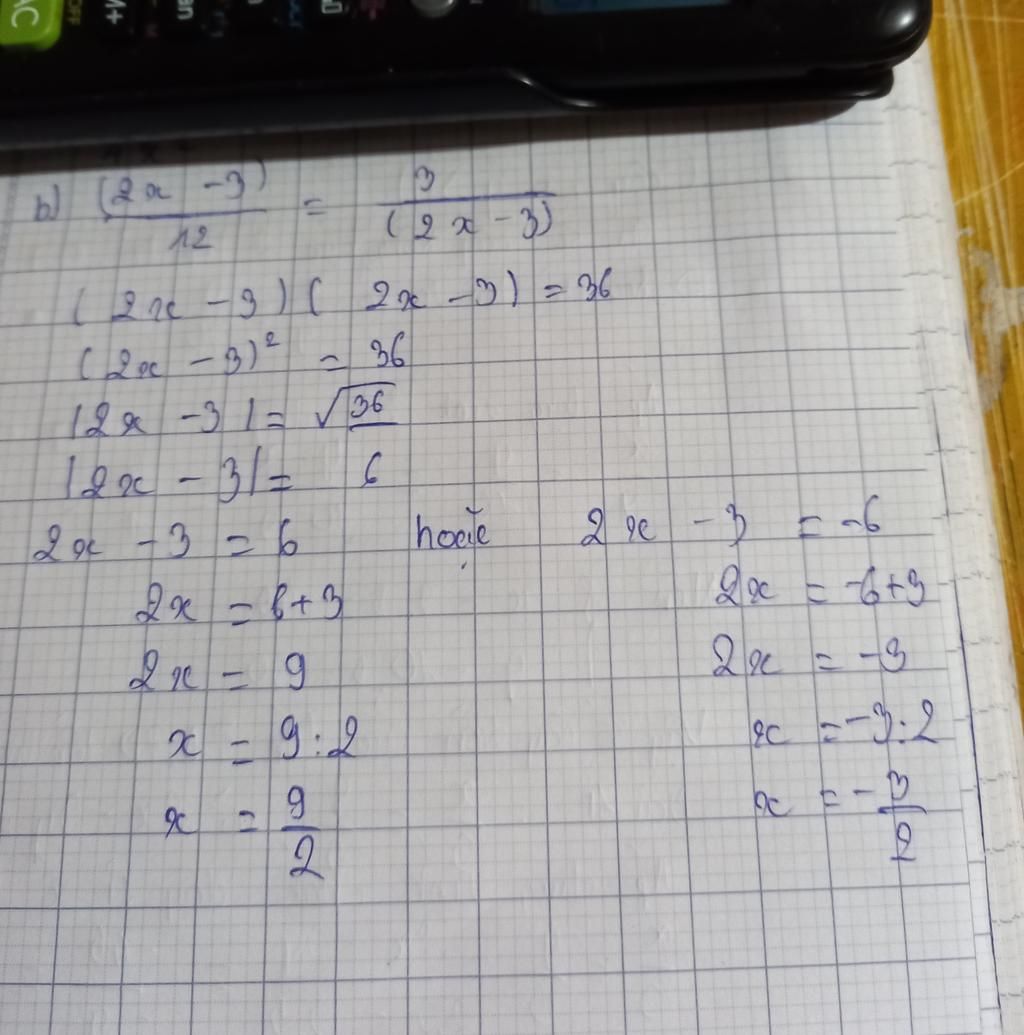 AC
OFF
M+
an
b) (2x - 3) / 12 = 3 / (2x - 3)
(2x - 3)(2x - 3) = 36
(2x - 3)² = 36
|2x - 3| = √36
|2x - 3| = 6
2x - 3 = 6 hoặc 2x - 3 = -6
2x = 6+3 2x = -6+3
2x = 9 2x = -3
x = 9:2 x = -3:2
x = 9/2 x = -3/2